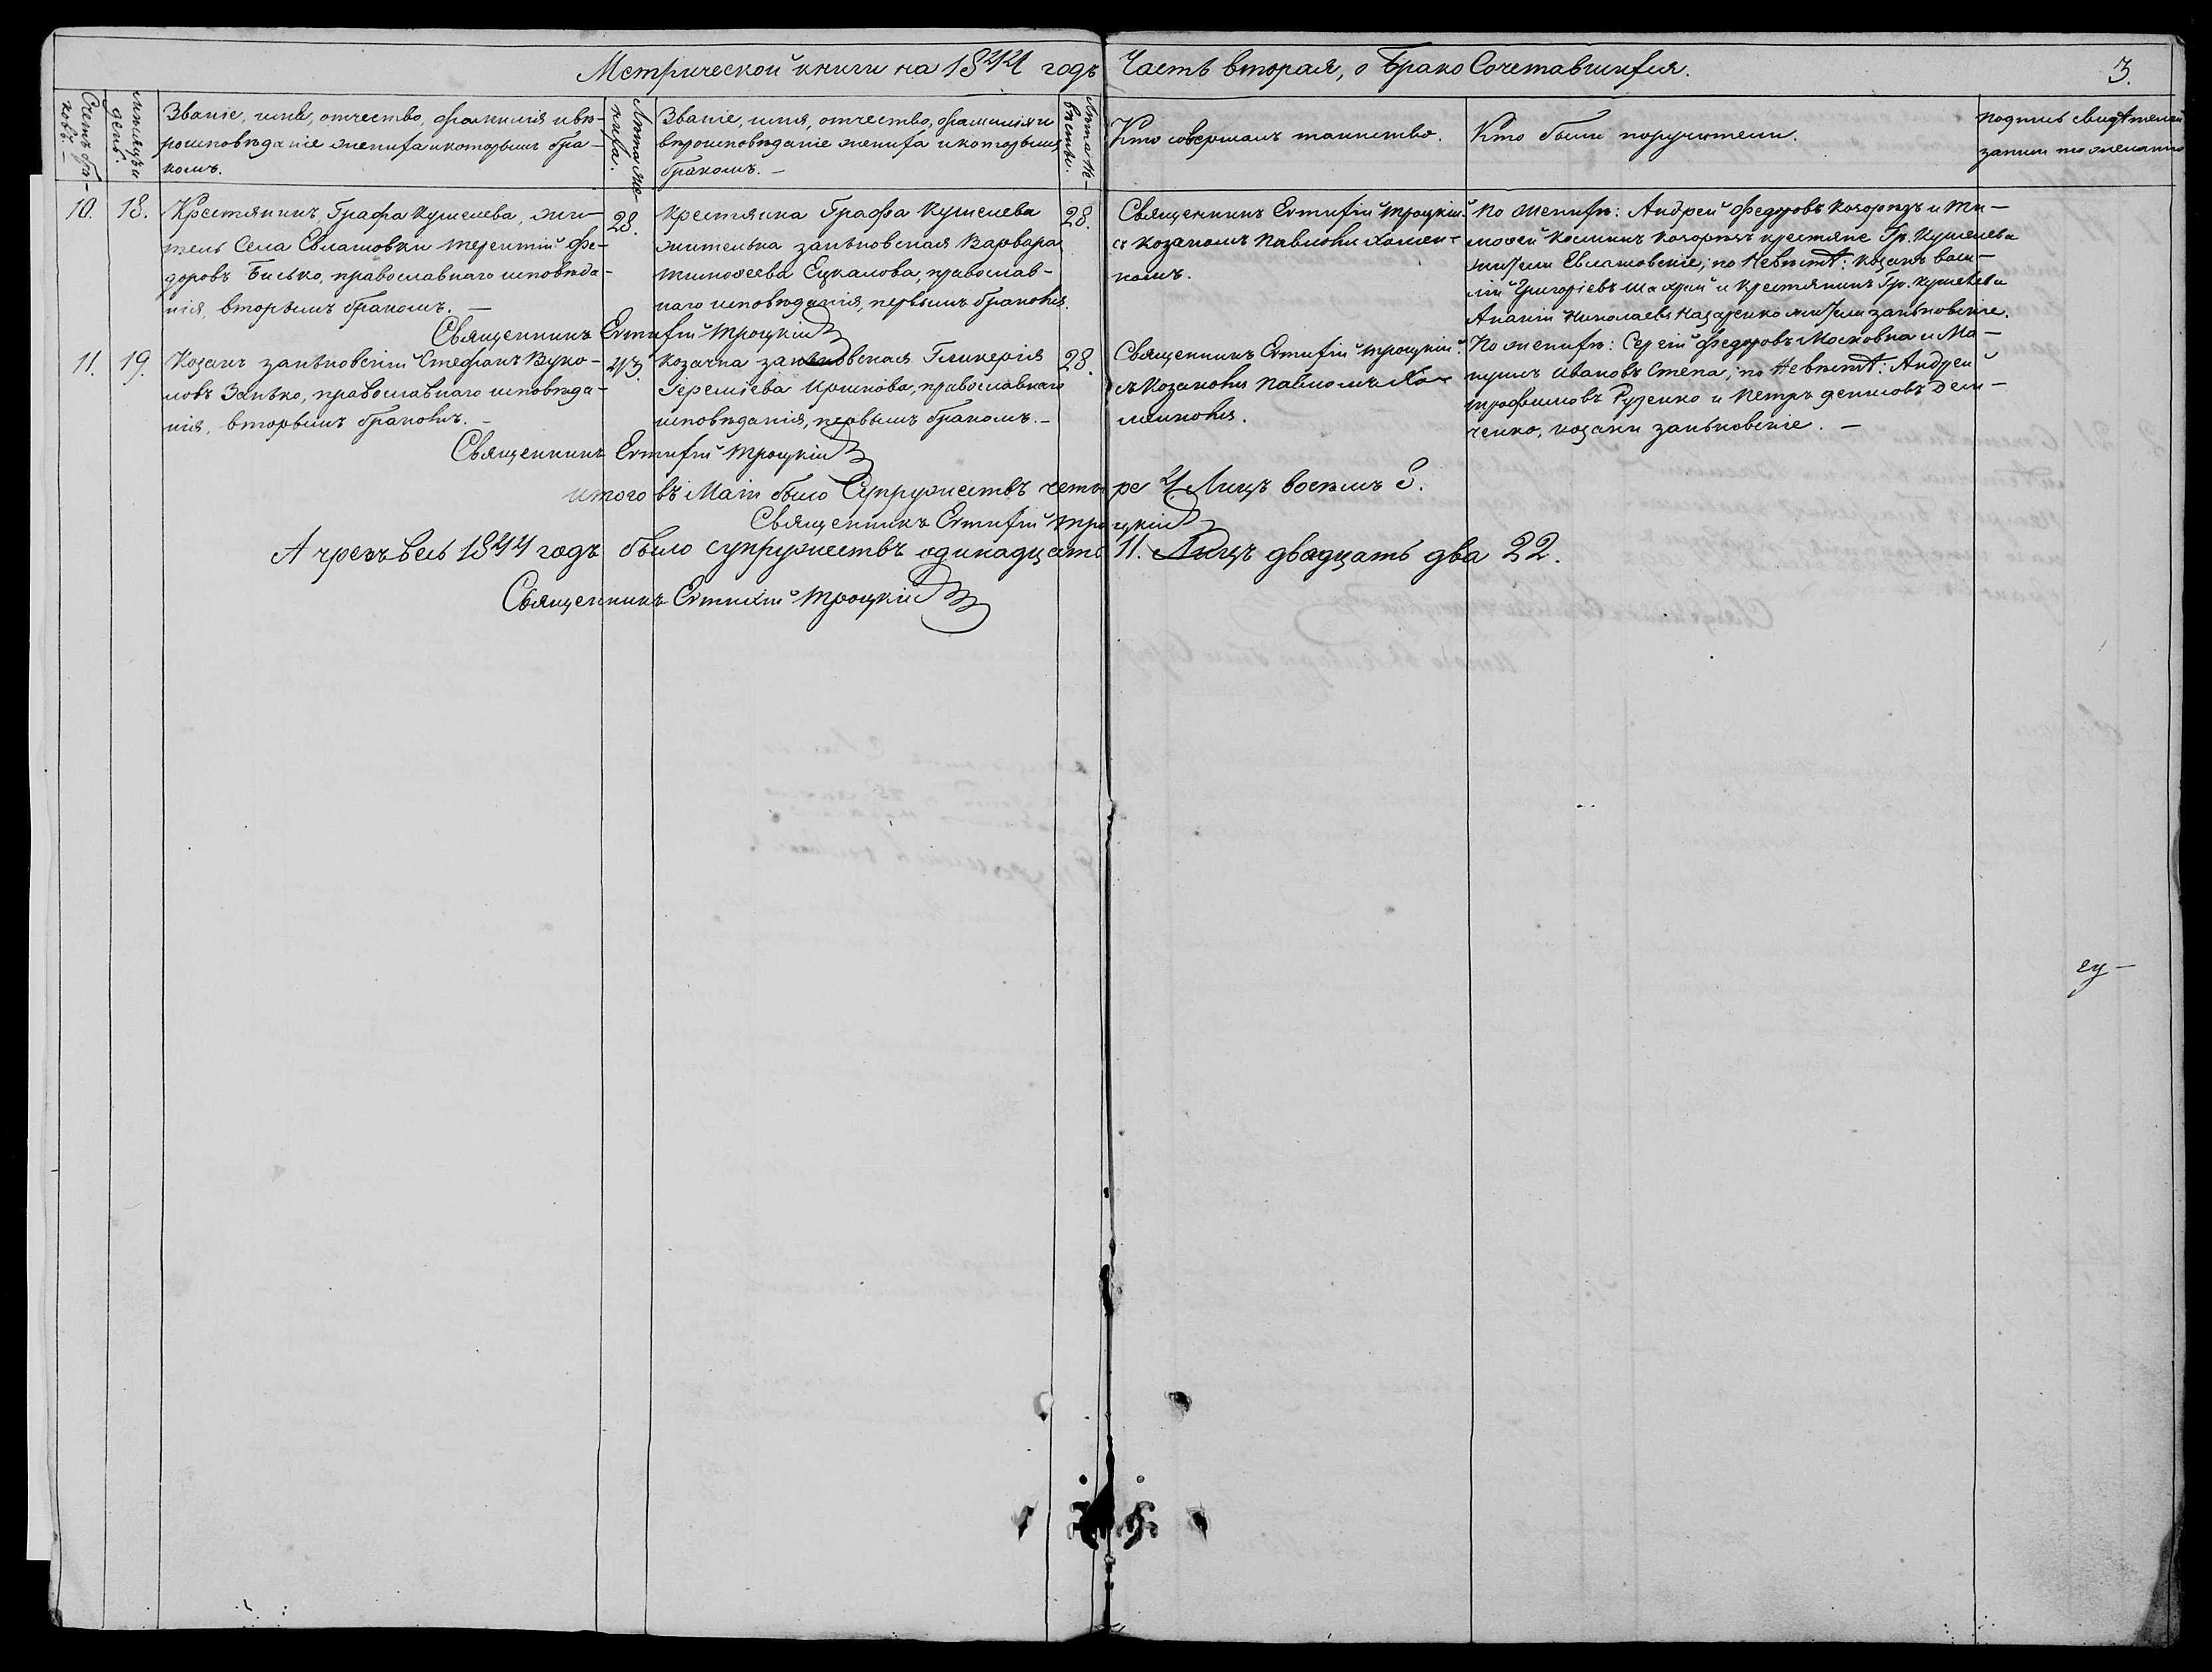 Метрической книги на 1844 годъ Часть вторая, о Брако Сочетавшихся.
3.
Счетъ бра-
ковъ. –
Мѣсяцъ и
день.
Званіе, имя, отчество, фамилія и вѣ-
роисповѣданіе жениха и которымъ бра-
комъ.
Лѣта же-
ниха.
Званіе, имя, отчество, фамилія и
вѣроисповѣданіе жениха и которымъ
бракомъ. –
Лѣта не-
вѣсты.
Кто совершалъ таинство.
Кто были поручители.
подпись свидѣтелей
записи по желанію
10.
18.
Крестянинъ, Графа Кушелева, жи-
тель Села Евлашовки Терентій Фе-
доровъ Бисько, православнаго исповѣда-
нія, вторымъ бракомъ. –
28.
Крестянка Графа Кушелева
жителька заньковская Варвара
Тимофеева Ецкалова, православ-
наго исповѣданія, первымъ бракомъ.
28.
Священникъ Евтихій Троцкій
съ козакомъ Павломъ Хомен-
комъ.
По женихѣ: Андрей Федоровъ Козорѣзъ и Ти-
мофей Козорѣзъ крестяне Гр. Кушелева
жители Евлашовскіе; по Невѣстѣ: Козакъ Васи-
лій Григоріевъ и Крестянинъ Гр. Кушелева
Ананій Николаевъ Назаренко жители заньковскіе.
Священникъ Евтихій Троцкій
11.
19.
Козакъ заньковскій Стефанъ Вуко-
ловъ Занько, православнаго исповѣда-
нія, вторымъ бракомъ. –
43.
Козачка заньковская Гликерія
Геремієва Иршкова, православнаго
исповѣданія, первымъ бракомъ. –
28.
Священникъ Евтихій Троцкій
съ Козакомъ Павломъ Хо-
менкомъ.
По женихѣ: Сергій Федоровъ Московка и Ма-
Ивановъ Степа; по Невѣстѣ: Андрей
Трофимовъ Руденко и Петръ Денисовъ Дем-
ченко, козаки заньковскіе. –
Священникъ Евтихій Троцкій
итого въ Маіи было Супружествъ четыре 4 Лицъ восемь 8.
Священникъ Евтихій Троцкій
А чрезъ весь 1844 годъ было супружествъ одинадцать 11. Лицъ двадцать два 22.
Священникъ Евтихій Троцкій